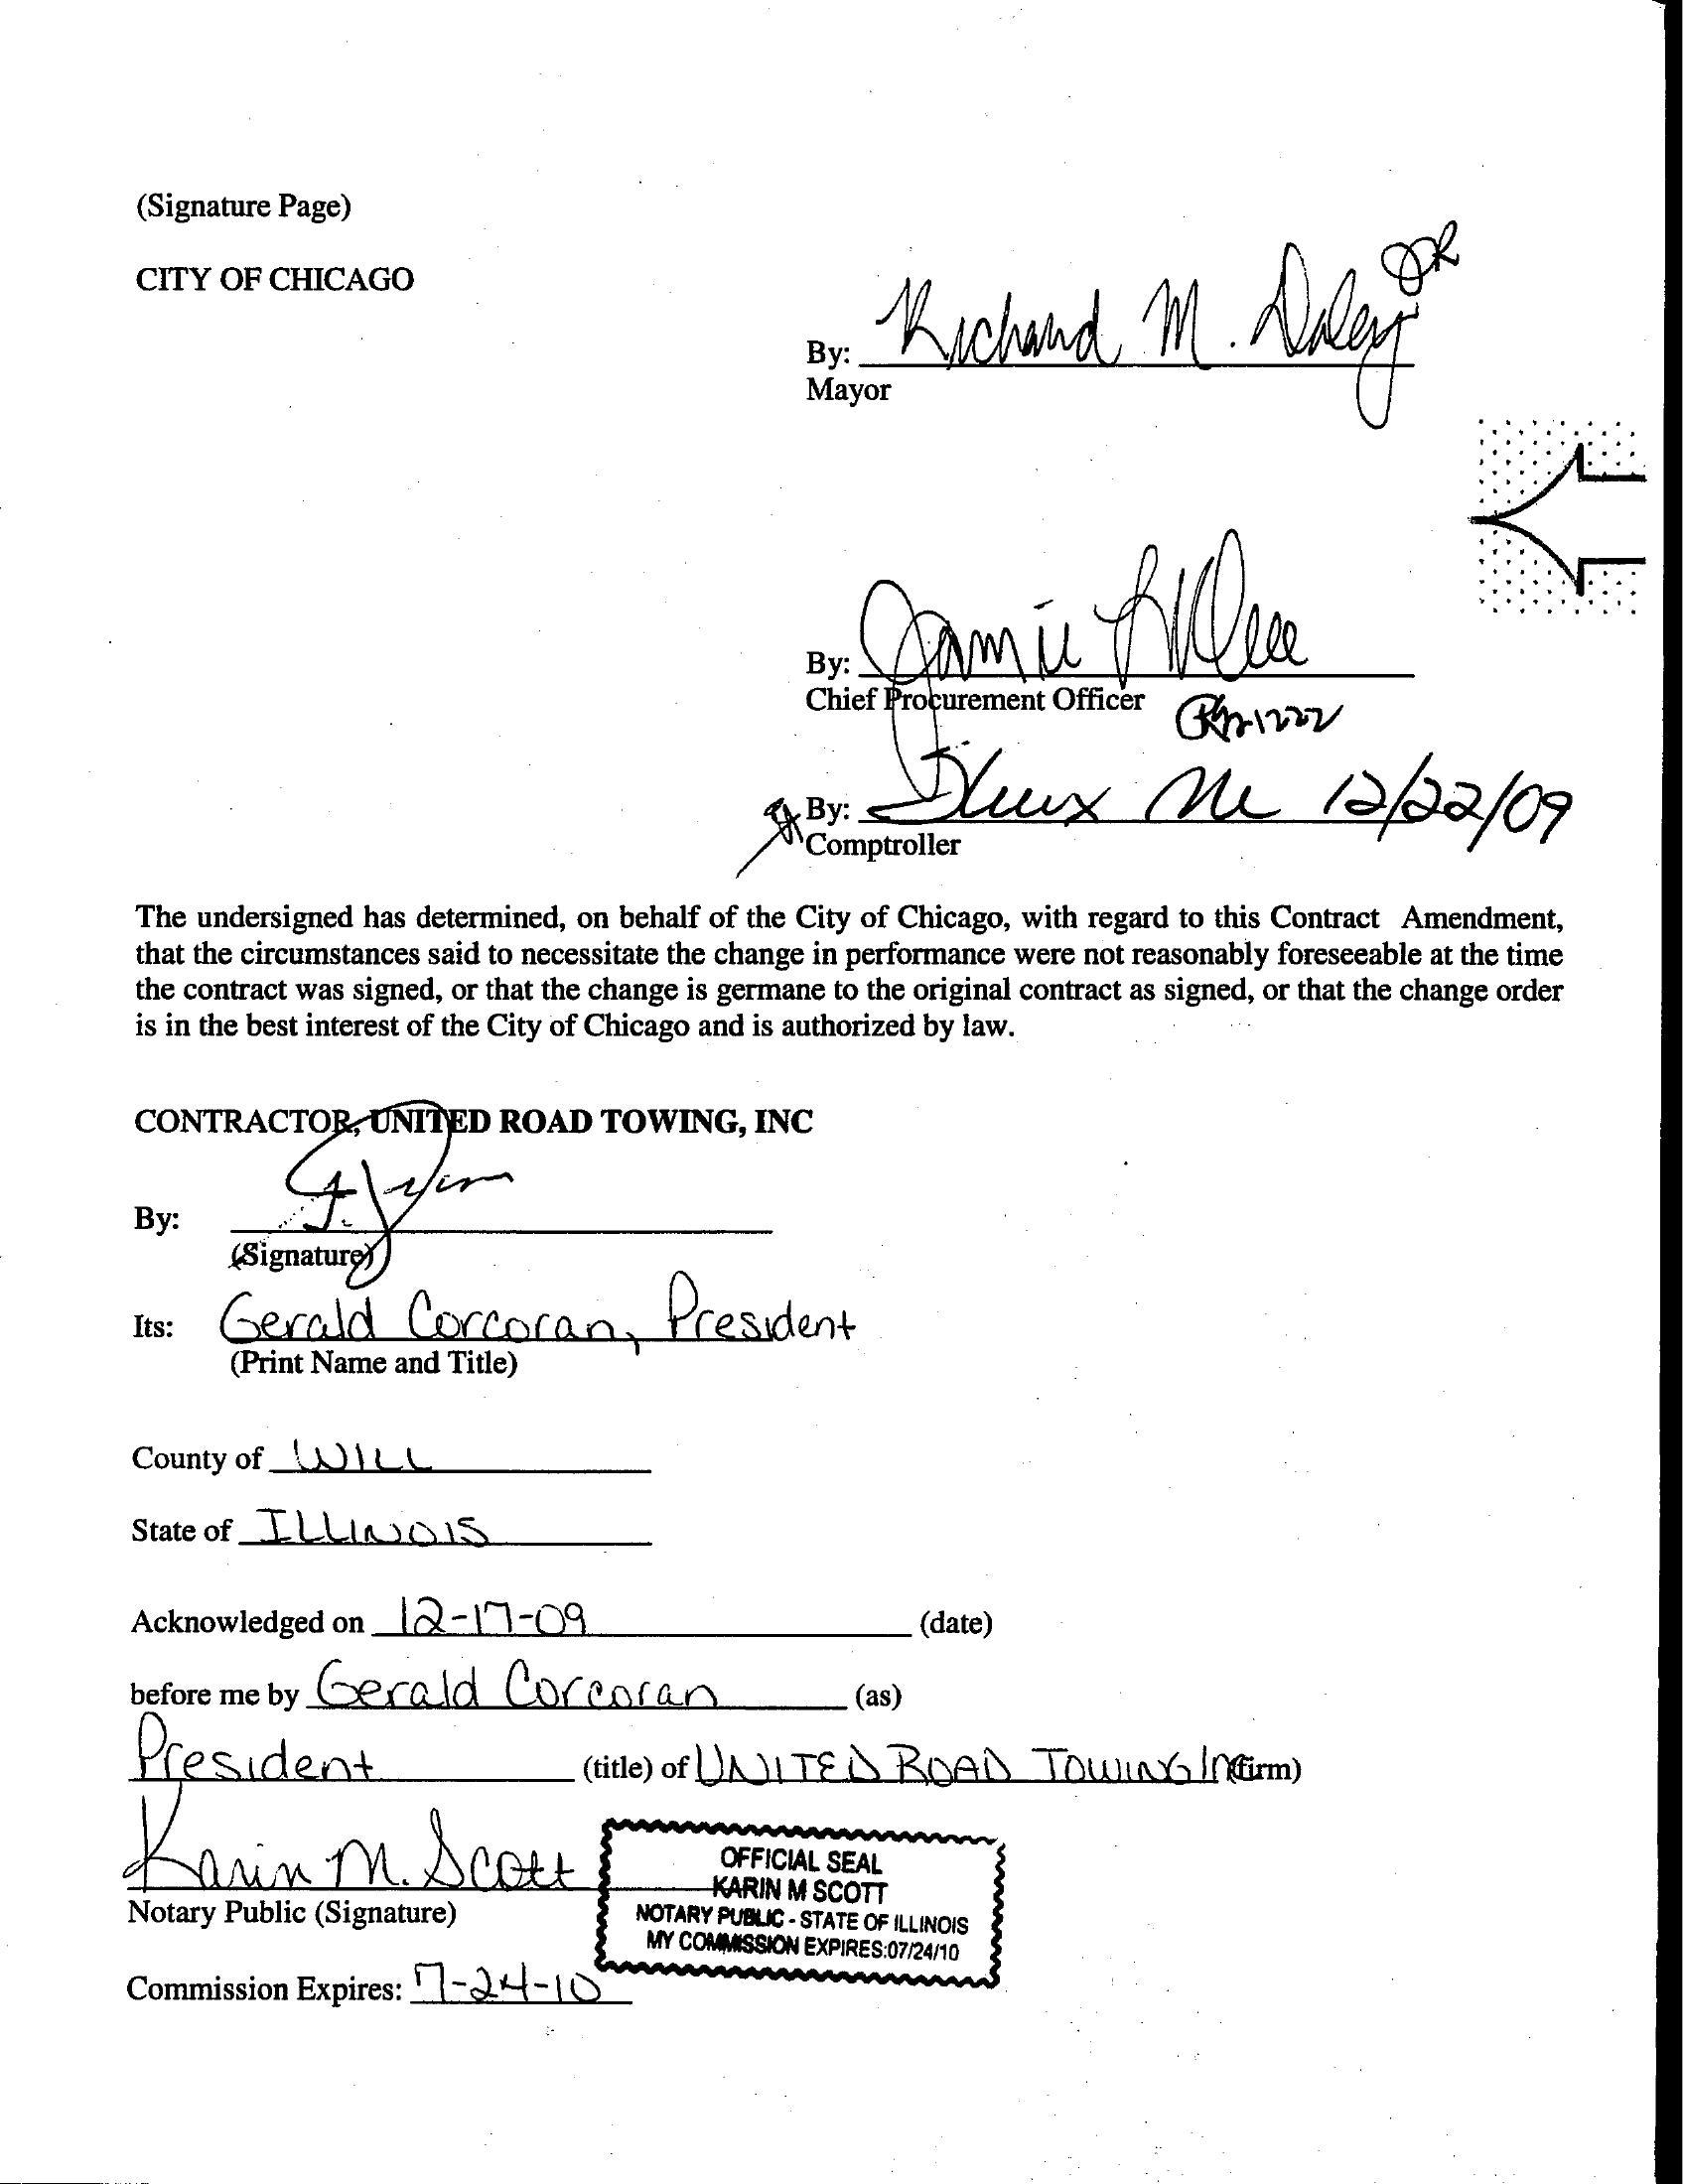 (Signature Page)
CITY OF CHICAGO
By: Richard M. Daley
Mayor
By: Jamie
Chief Procurement Officer
By: 12/22/09
Comptroller
The undersigned has determined, on behalf of the City of Chicago, with regard to this Contract Amendment,
that the circumstances said to necessitate the change in performance were not reasonably foreseeable at the time
the contract was signed, or that the change is germane to the original contract as signed, or that the change order
is in the best interest of the City of Chicago and is authorized by law.
CONTRACTOR, UNITED ROAD TOWING, INC
By:
(Signature)
Its: Gerald Corcoran, President
(Print Name and Title)
County of WILL
State of ILLINOIS
Acknowledged on 12-17-09 (date)
before me by Gerald Corcoran (as)
President (title) of UNITED ROAD TOWING Inc (firm)
Karin M. Scott
Notary Public (Signature)
OFFICIAL SEAL
KARIN M SCOTT
NOTARY PUBLIC - STATE OF ILLINOIS
MY COMMISSION EXPIRES:07/24/10
Commission Expires: 7-24-10